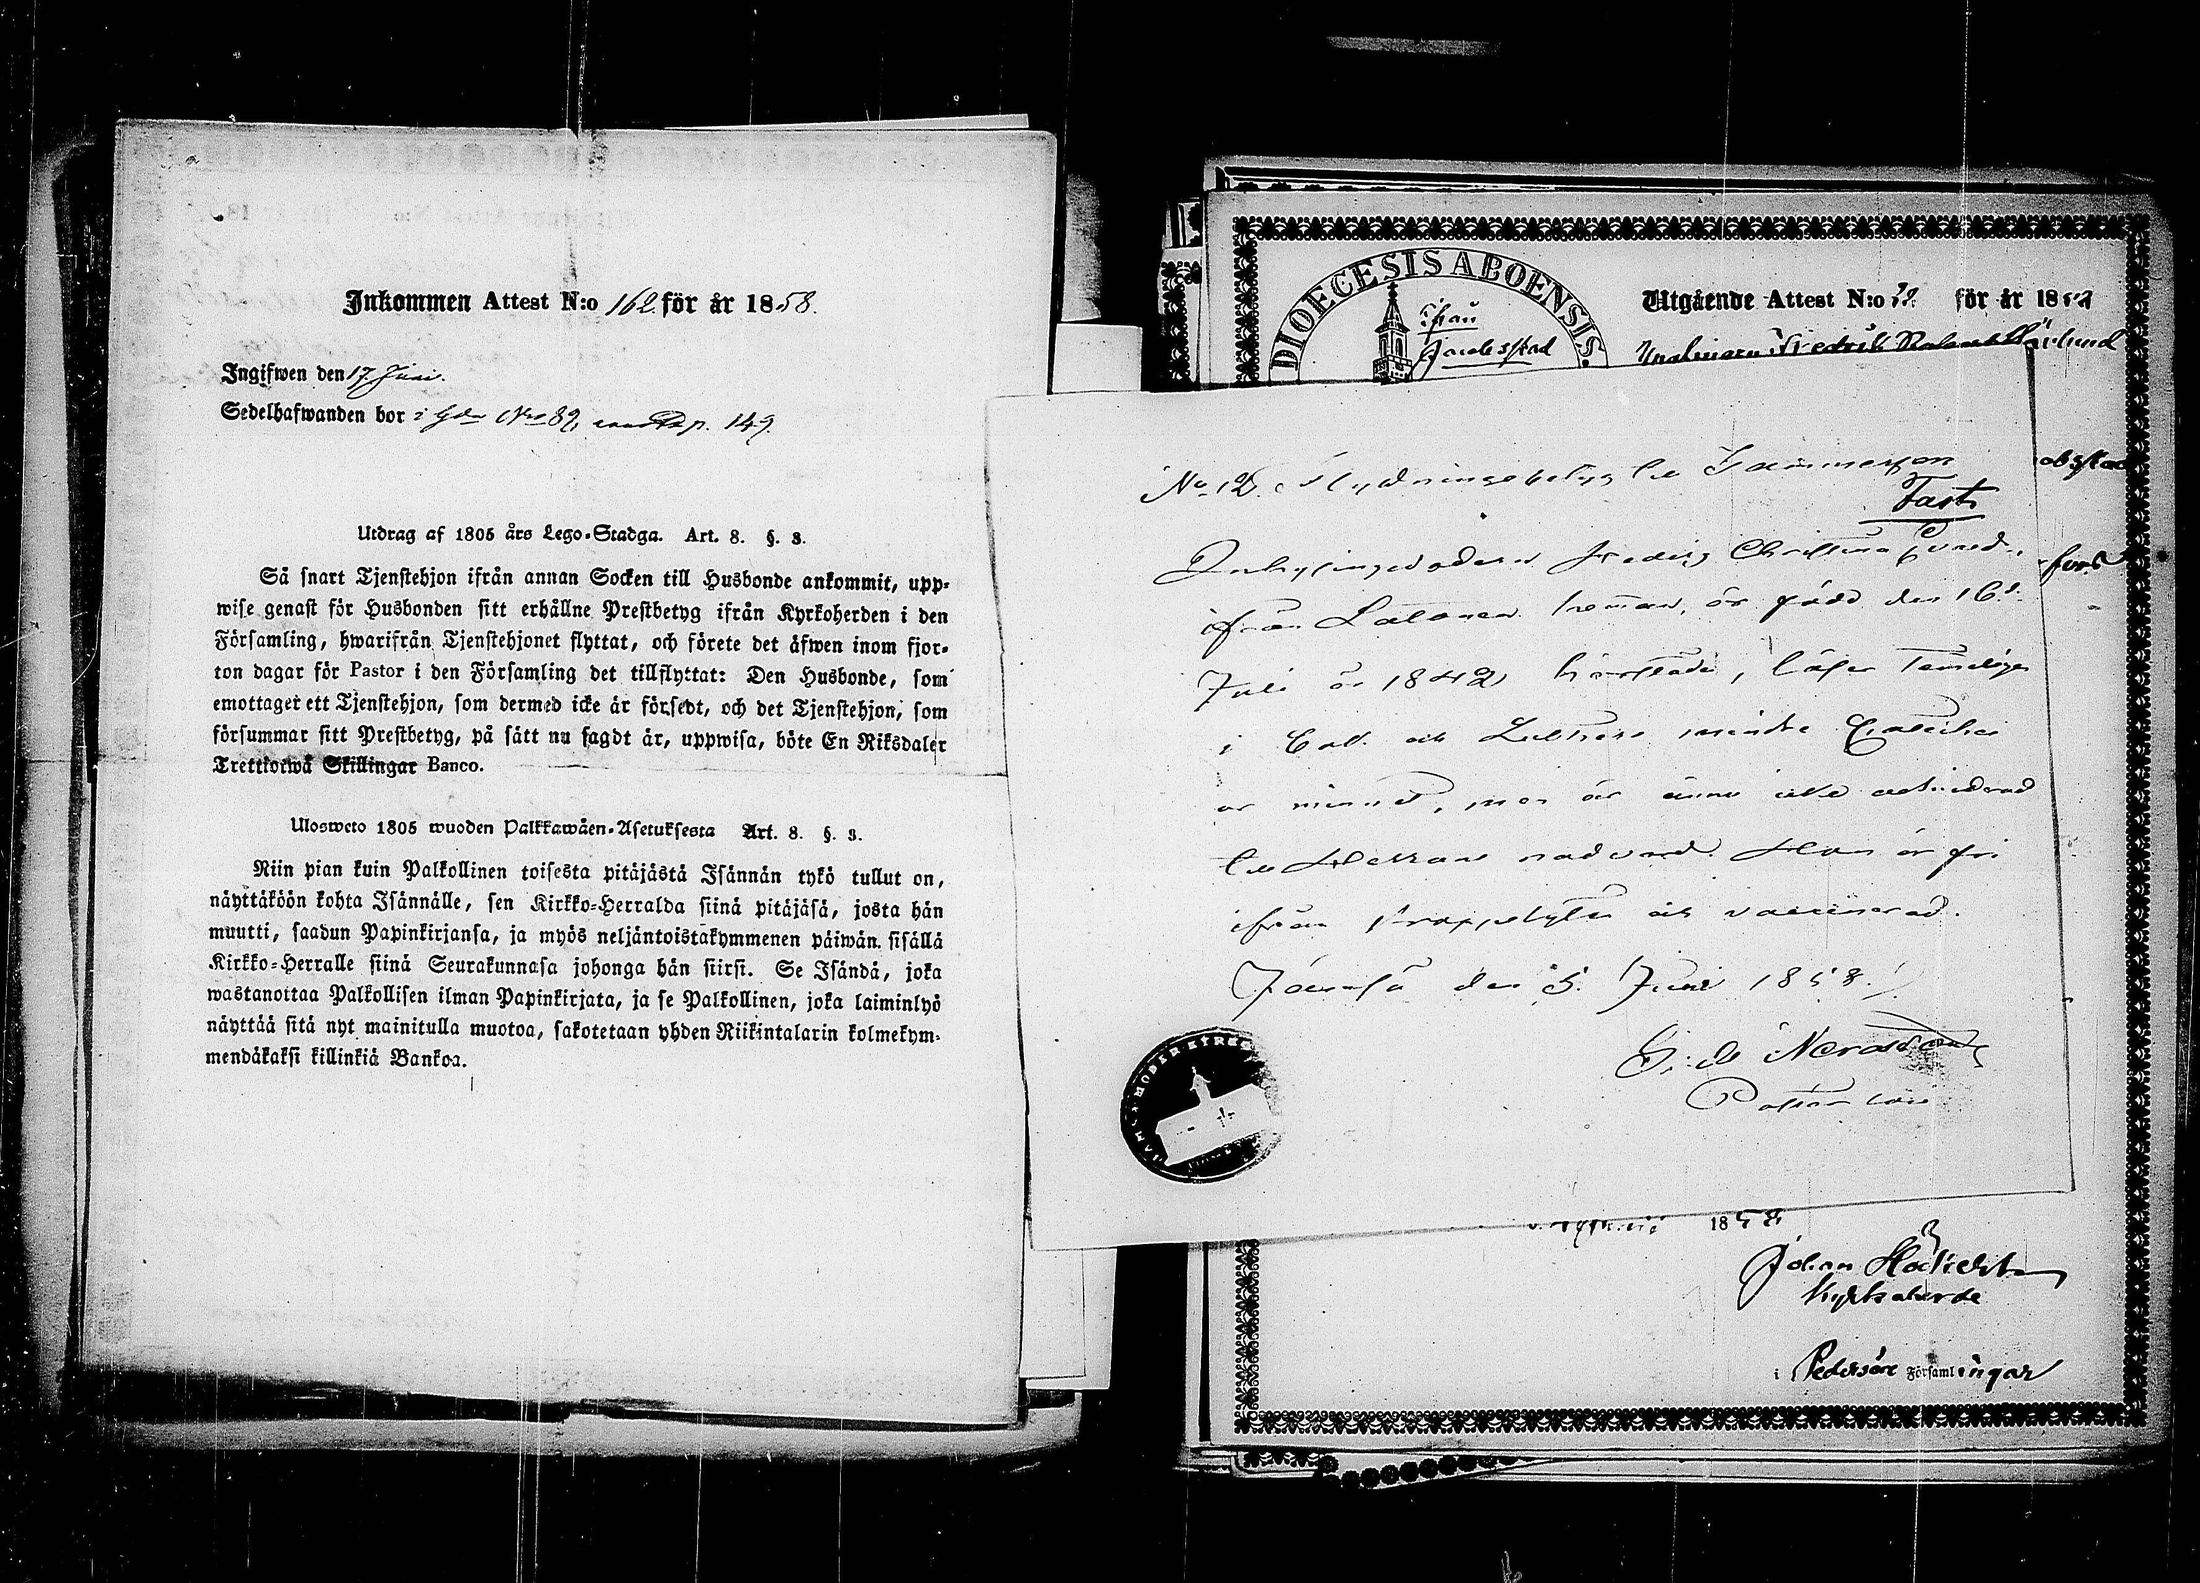 Inkommen Attest N:o 162 för år 1858.
Ingifwen den 17 Juni.
Sedelhafwanden bor i Gdn No 89, p. 149.
Utdrag af 1805 års Lego-Stadga. Art. 8. §. 3.
Så snart Tjenstehjon ifrån annan Socken till Husbonde ankommit, upp-
wise genast för Husbonden sitt erhållne Prestbetyg ifrån Kyrkoherden i den
Församling, hwarifrån Tjenstehjonet flyttat, och förete det äfwen inom fjor-
ton dagar för Pastor i den Församling det tillflyttat: Den Husbonde, som
emottager ett Tjenstehjon, som dermed icke är försedt, och det Tjenstehjon, som
försummar sitt Prestbetyg, på sätt nu sagdt är, uppwisa, böte En Riksdaler
Trettiotwå Skillingar Banco.
Ulosweto 1805 wuoden Palkkawäen-Asetuksesta Art. 8. §. 3.
Niin pian kuin Palkollinen toisesta pitäjästä Isännän tykö tullut on,
näyttäköön kohta Isännälle, sen Kirkko-Herralda siinä pitäjäsä, josta hän
muutti, saadun Papinkirjansa, ja myös neljäntoistakymmenen päiwän sisällä
Kirkko-Herralle siinä Seurakunnasa johonga hän siirsi. Se Isändä, joka
wastanottaa Palkollisen ilman Papinkirjata, ja se Palkollinen, joka laiminlyö
näyttää sitä nyt mainitulla muotoa, sakotetaan yhden Riikintalarin kolmekym-
mendäkaksi killinkiä Bankoa.
DIOECESIS ABOENSIS.
ifrån
Jacobstad
Utgående Attest N:o 22. för år 1858
Ynglingen Fredrik
No 12. Flyttningsbetyg till Tammerfors
Fast
Inhysingedottren Hedvig Christina
ifrån hemman, är född den 16de
Juli år 1842 härstädes, läser temligen
i bok och Lutheri mindre Cateches
ur minnet, men är ännu icke admitterad
till Herrans nattvard. Hon är fri
ifrån kroppslyten och vaccinerad.
Jämsä den 5. Juni 1858.
Pastor
JÄMSÄ MODER KYRKO
1858
Johan
Kyrkoherde
i Pedersöre Församlingar